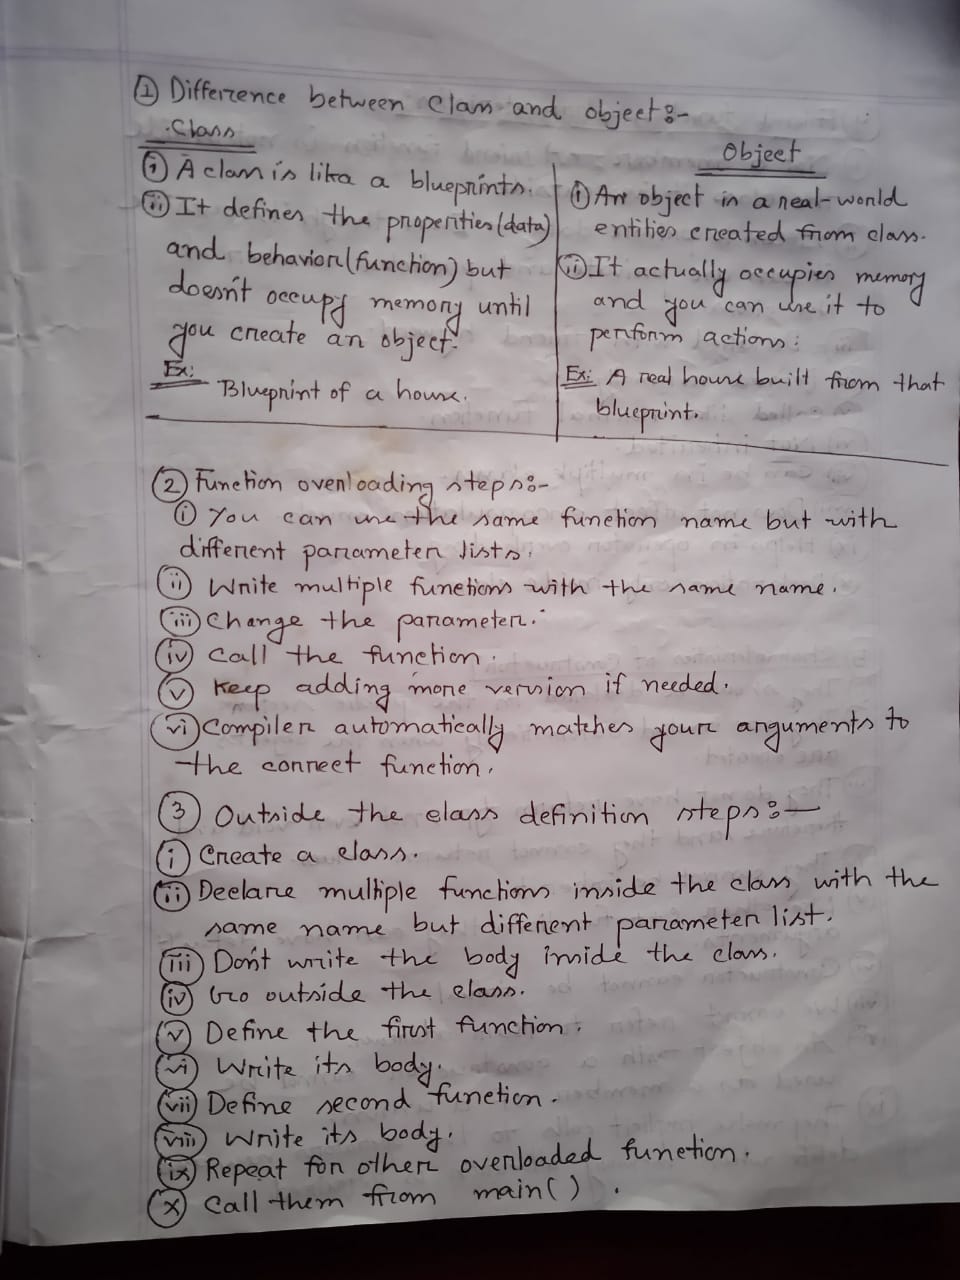 ① Difference between Class and object:-
Class
Object
① A class is like a blueprints.
ⅱ It defines the properties (data)
and behavior (function) but
doesn't occupy memory until
you create an object.
Ex:
Blueprint of a house.
① An object is a real-world
entities created from class.
ⅱ It actually occupies memory
and you can use it to
perform actions:
Ex: A real house built from that
blueprint.
② Function overloading steps:-
ⅰ You can use the same function name but with
different parameter lists.
ⅱ Write multiple functions with the same name.
ⅲ Change the parameter.
ⅳ Call the function.
ⅴ Keep adding more version if needed.
ⅵ Compiler automatically matches your arguments to
the correct function.
③ Outside the class definition steps:—
ⅰ Create a class.
ⅱ Declare multiple functions inside the class with the
same name but different parameter list.
ⅲ Don't write the body inside the class.
ⅳ Go outside the class.
ⅴ Define the first function.
ⅵ Write its body.
ⅶ Define second function.
ⅷ Write its body.
ⅸ Repeat for other overloaded function.
ⅹ Call them from main( ) .